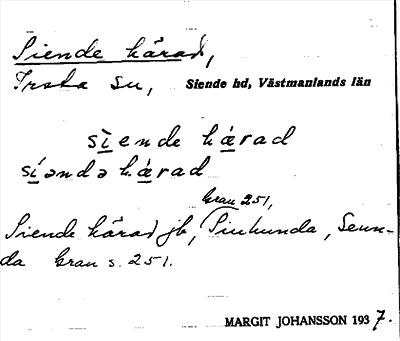 Siende härad,
Irsta sn, Siende hd, Västmanlands län
sìende hä́rad
sí̀əndə hä́rad
Grau 251,
Siende härad jb, Siuhunda, Seun-
da Grau s. 251.
MARGIT JOHANSSON 1937.